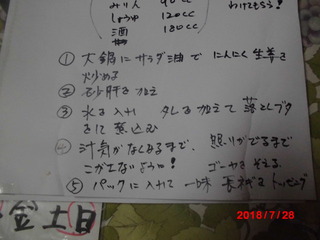 みりん 90cc
しょうゆ 120cc
酒 180cc
わけてもらう!
① 大鍋にサラダ油でにんにく生姜を
炒める
② 砂肝を加え
③ 水を入れ タレを加えて落としブタ
をして煮込む
④ 汁気がなくなるまで、照りがでるまで
こがさないように! ゴーヤを添える
⑤ パックに入れて 一味 長ネギをトッピング
金土日
2018/7/28